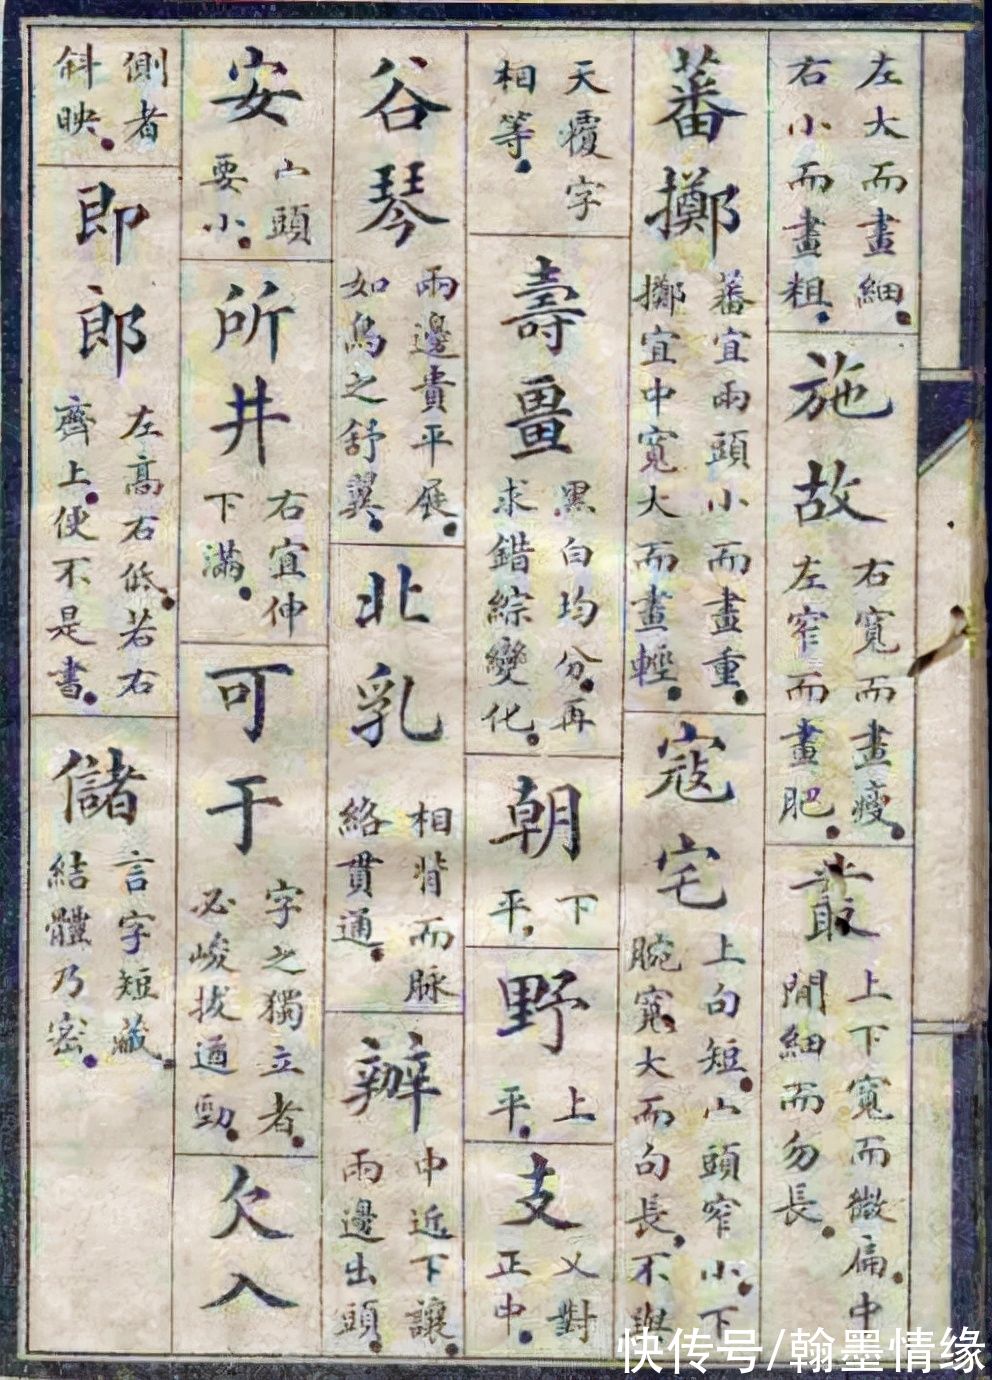 左大而畫細
右小而畫粗
施故
右寬而畫瘦
左窄而畫肥
最
上下寬而微扁中
間細而勿長
蕃擲
蕃宜兩頭小而畫重
擲宜中寬大而畫輕
寇宅
上句短宀頭窄小下
腕寬大而句長不與
天覆字
相等
壽畺
黑白均分再
求錯綜變化
朝
下
平
野
上
平
支
乂對
正中
谷琴
兩邊貴平展
如鳥之舒翼
北乳
相背而脉
絡貫通
辦
中近下讓
兩邊出頭
安
宀頭
要小
所井
右宜伸
下滿
可于
字之獨立者
必峻拔遒勁
欠入
側者
斜映
即郎
左高右低若右
齊上便不是書
儲
言字短藏
結體乃密
快传号/翰墨情缘